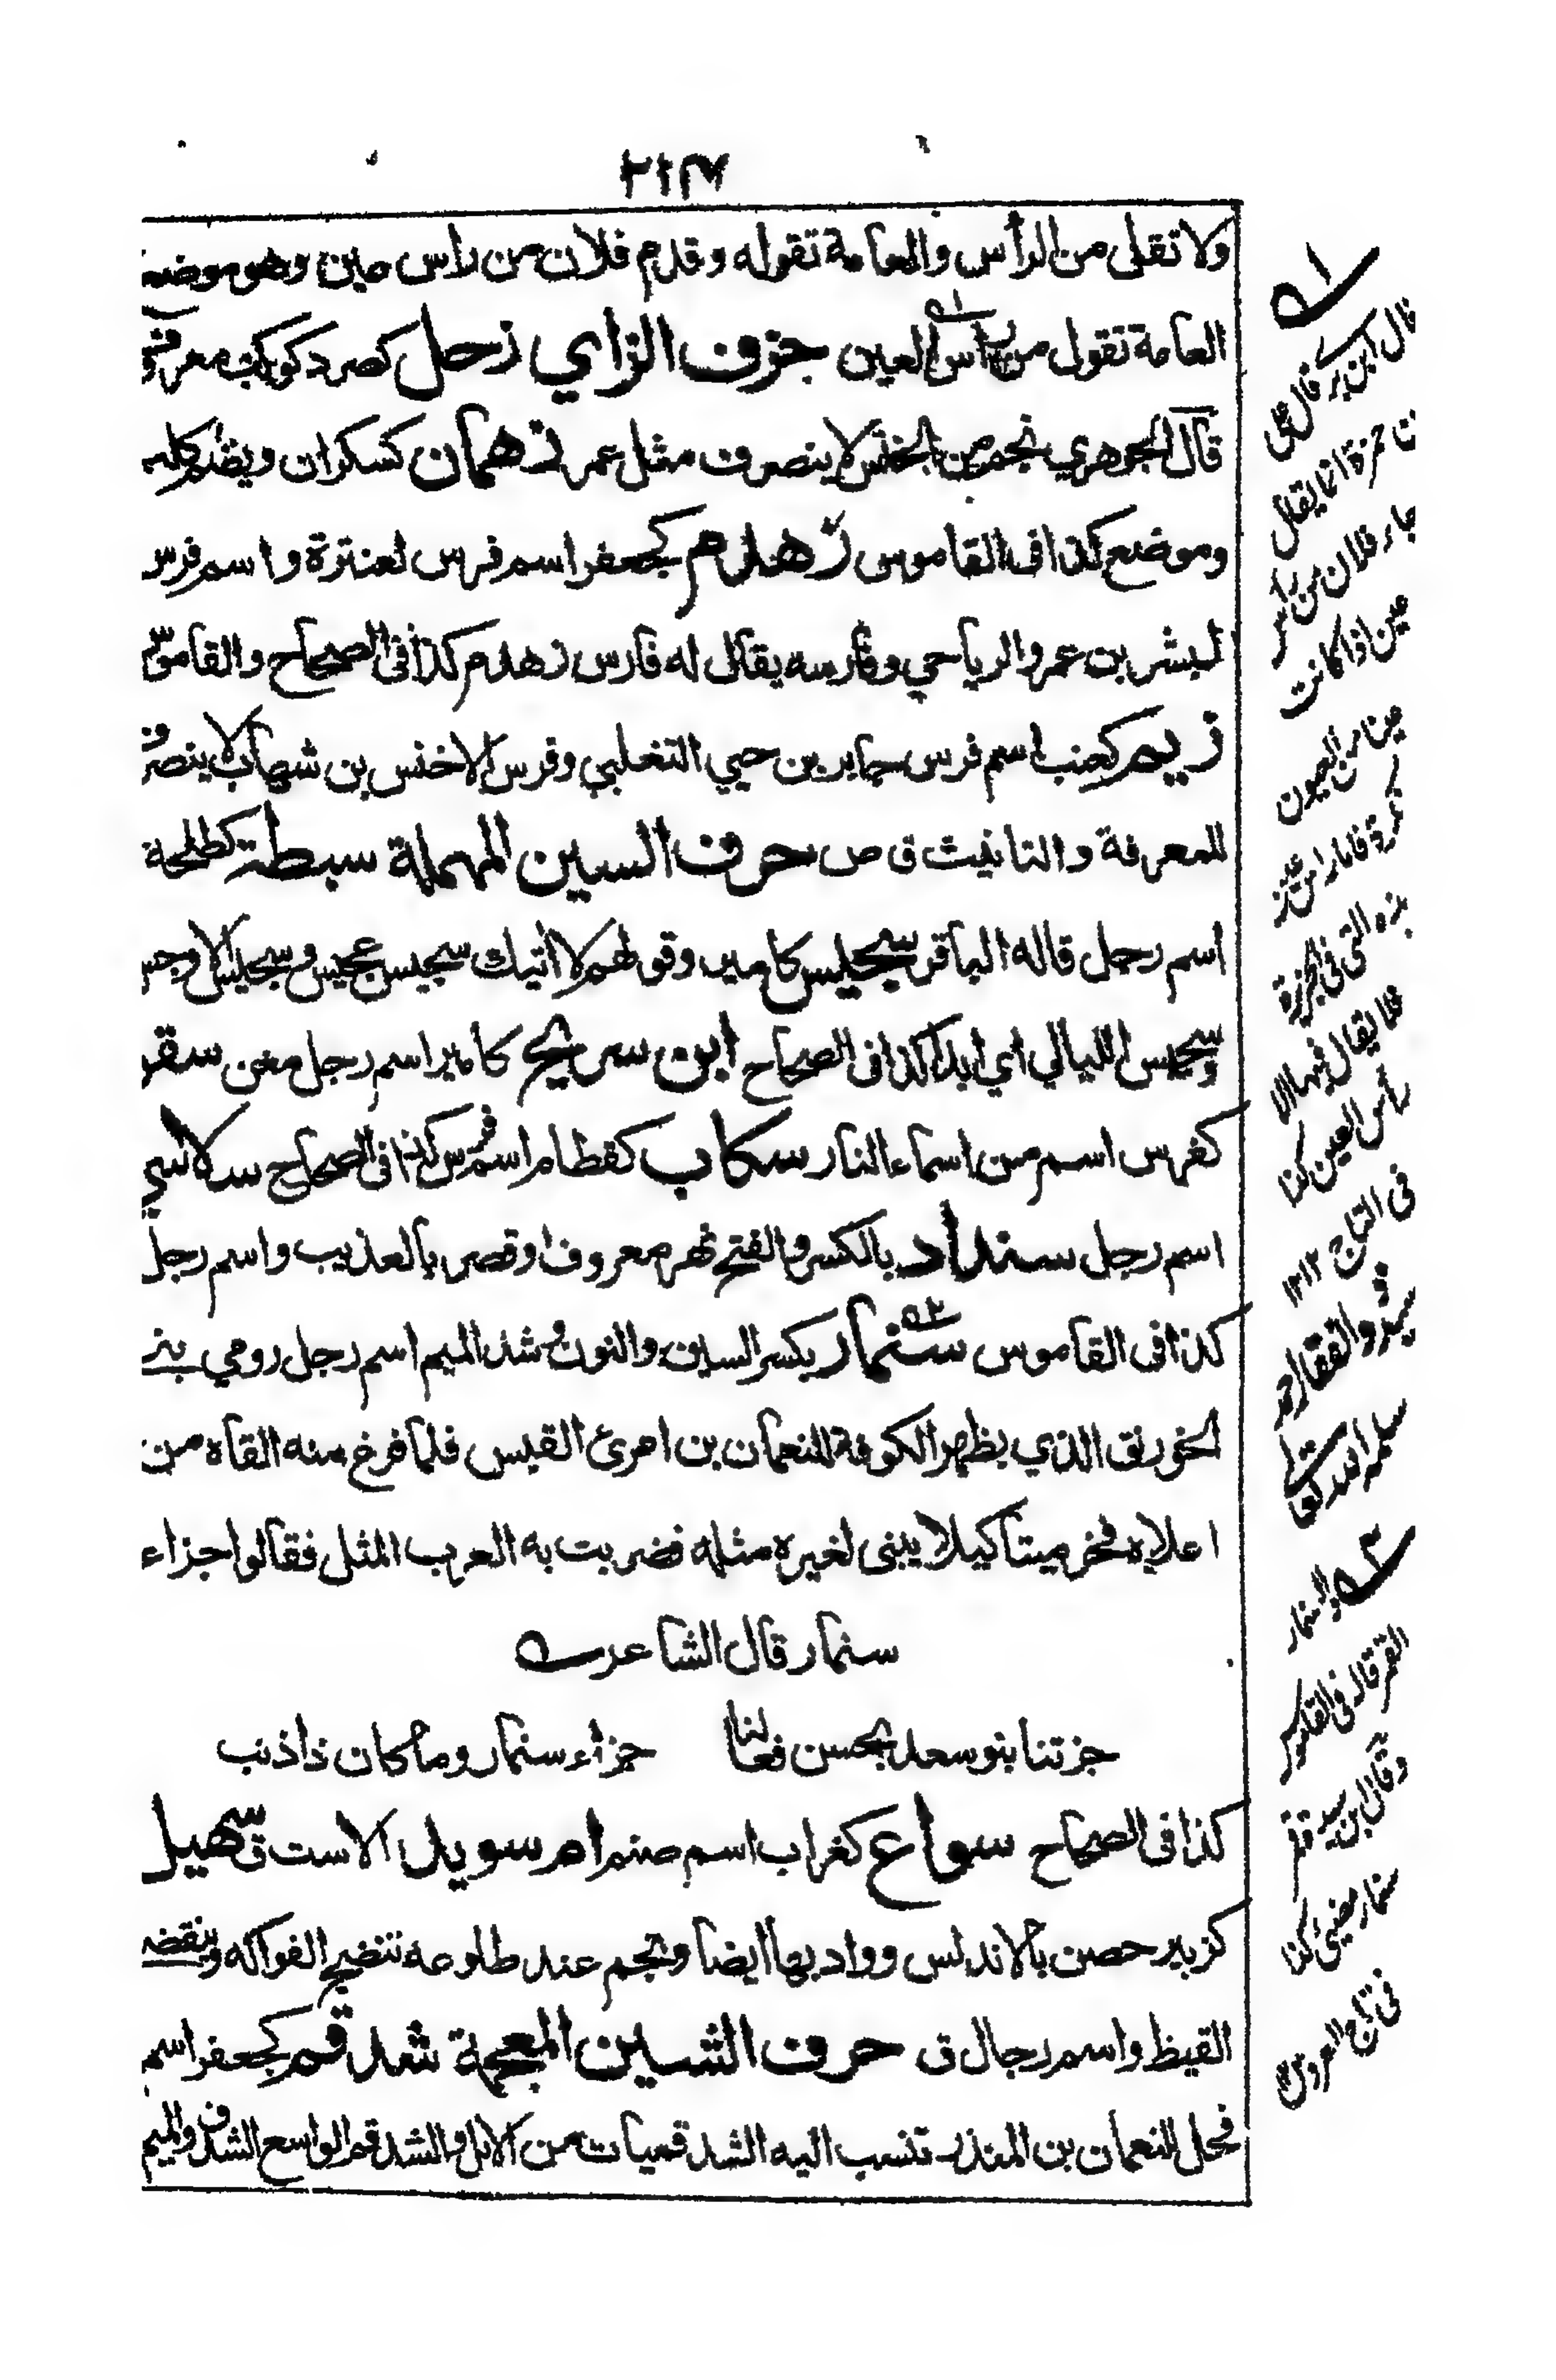 ٢١٣
ولا تقل من الرأس والعامة تقوله وقدم فلان من رأس عين وهو موضع
العامة تقول من رأس العين حرف الزاي زحل كصرد كوكب معرفة
قال الجوهري نجم من الخنس لا ينصرف مثل عمر زهمان كسكران ويضم كلب
وموضع كذا في القاموس زهدم كجعفر اسم فرس لعنترة واسم فرس
لبشر بن عمرو الرياحي وفارسه يقال له فارس زهدم كذا في الصحاح والقاموس
زيم كعنب اسم فرس جابر بن حيي التغلبي وفرس الاخنس بن شهاب لا ينصرف
للمعرفة والتانيث ق ص حرف السين المهملة سبطة كطلحة
اسم رجل قاله الباقر سجيس كامير وقولهم لا اتيك سجيس عجيس وسجيس الاوجس
وسجيس الليالي اي ابدا كذا في الصحاح ابن سريج كامير اسم رجل مغن سقر
كفرس اسم من اسماء النار سكاب كقطام اسم فرس كذا في الصحاح
اسم رجل سنداد بالكسر والفتح نهر معروف او قصر بالعذيب واسم رجل
كذا في القاموس سنمار بكسر السين والنون وشد الميم اسم رجل رومي بنى
الخورنق الذي بظهر الكوفة للنعمان بن امرئ القيس فلما فرغ منه القاه من
اعلاه فخر ميتا كيلا يبنى لغيره مثله فضربت به العرب المثل فقالوا جزاء
سنمار قال الشاعر
جزتنا بنو سعد بحسن فعالنا جزاء سنمار وما كان ذا ذنب
كذا في الصحاح سواع كغراب اسم صنم ام سويد الاست ق سهيل
كزبير حصن بالاندلس وواد بها ايضا ونجم عند طلوعه تنضج الفواكه وينقضي
القيظ واسم رجال ق حرف الشين المعجمة شدقم كجعفر اسم
فحل للنعمان بن المنذر تنسب اليه الشدقميات من الابل والشدقم الواسع الشدق والميم
١
قال ابن بري قال علي
بن حمزة انما يقال
جاء فلان من رأس
عين اذا كانت
عينا من العيون
نكرة فاما رأس عين
هذه التي في الجزيرة
فلا يقال فيها الا
رأس العين كذا
في التاج ١٢
سيد ذو الفقار احمد
سلمه الله تعالى
٢ والسنمار
القمر قال في القاموس
وقال ابن سيده قمر
سنمار مضيئ كذا
في تاج العروس ١٢